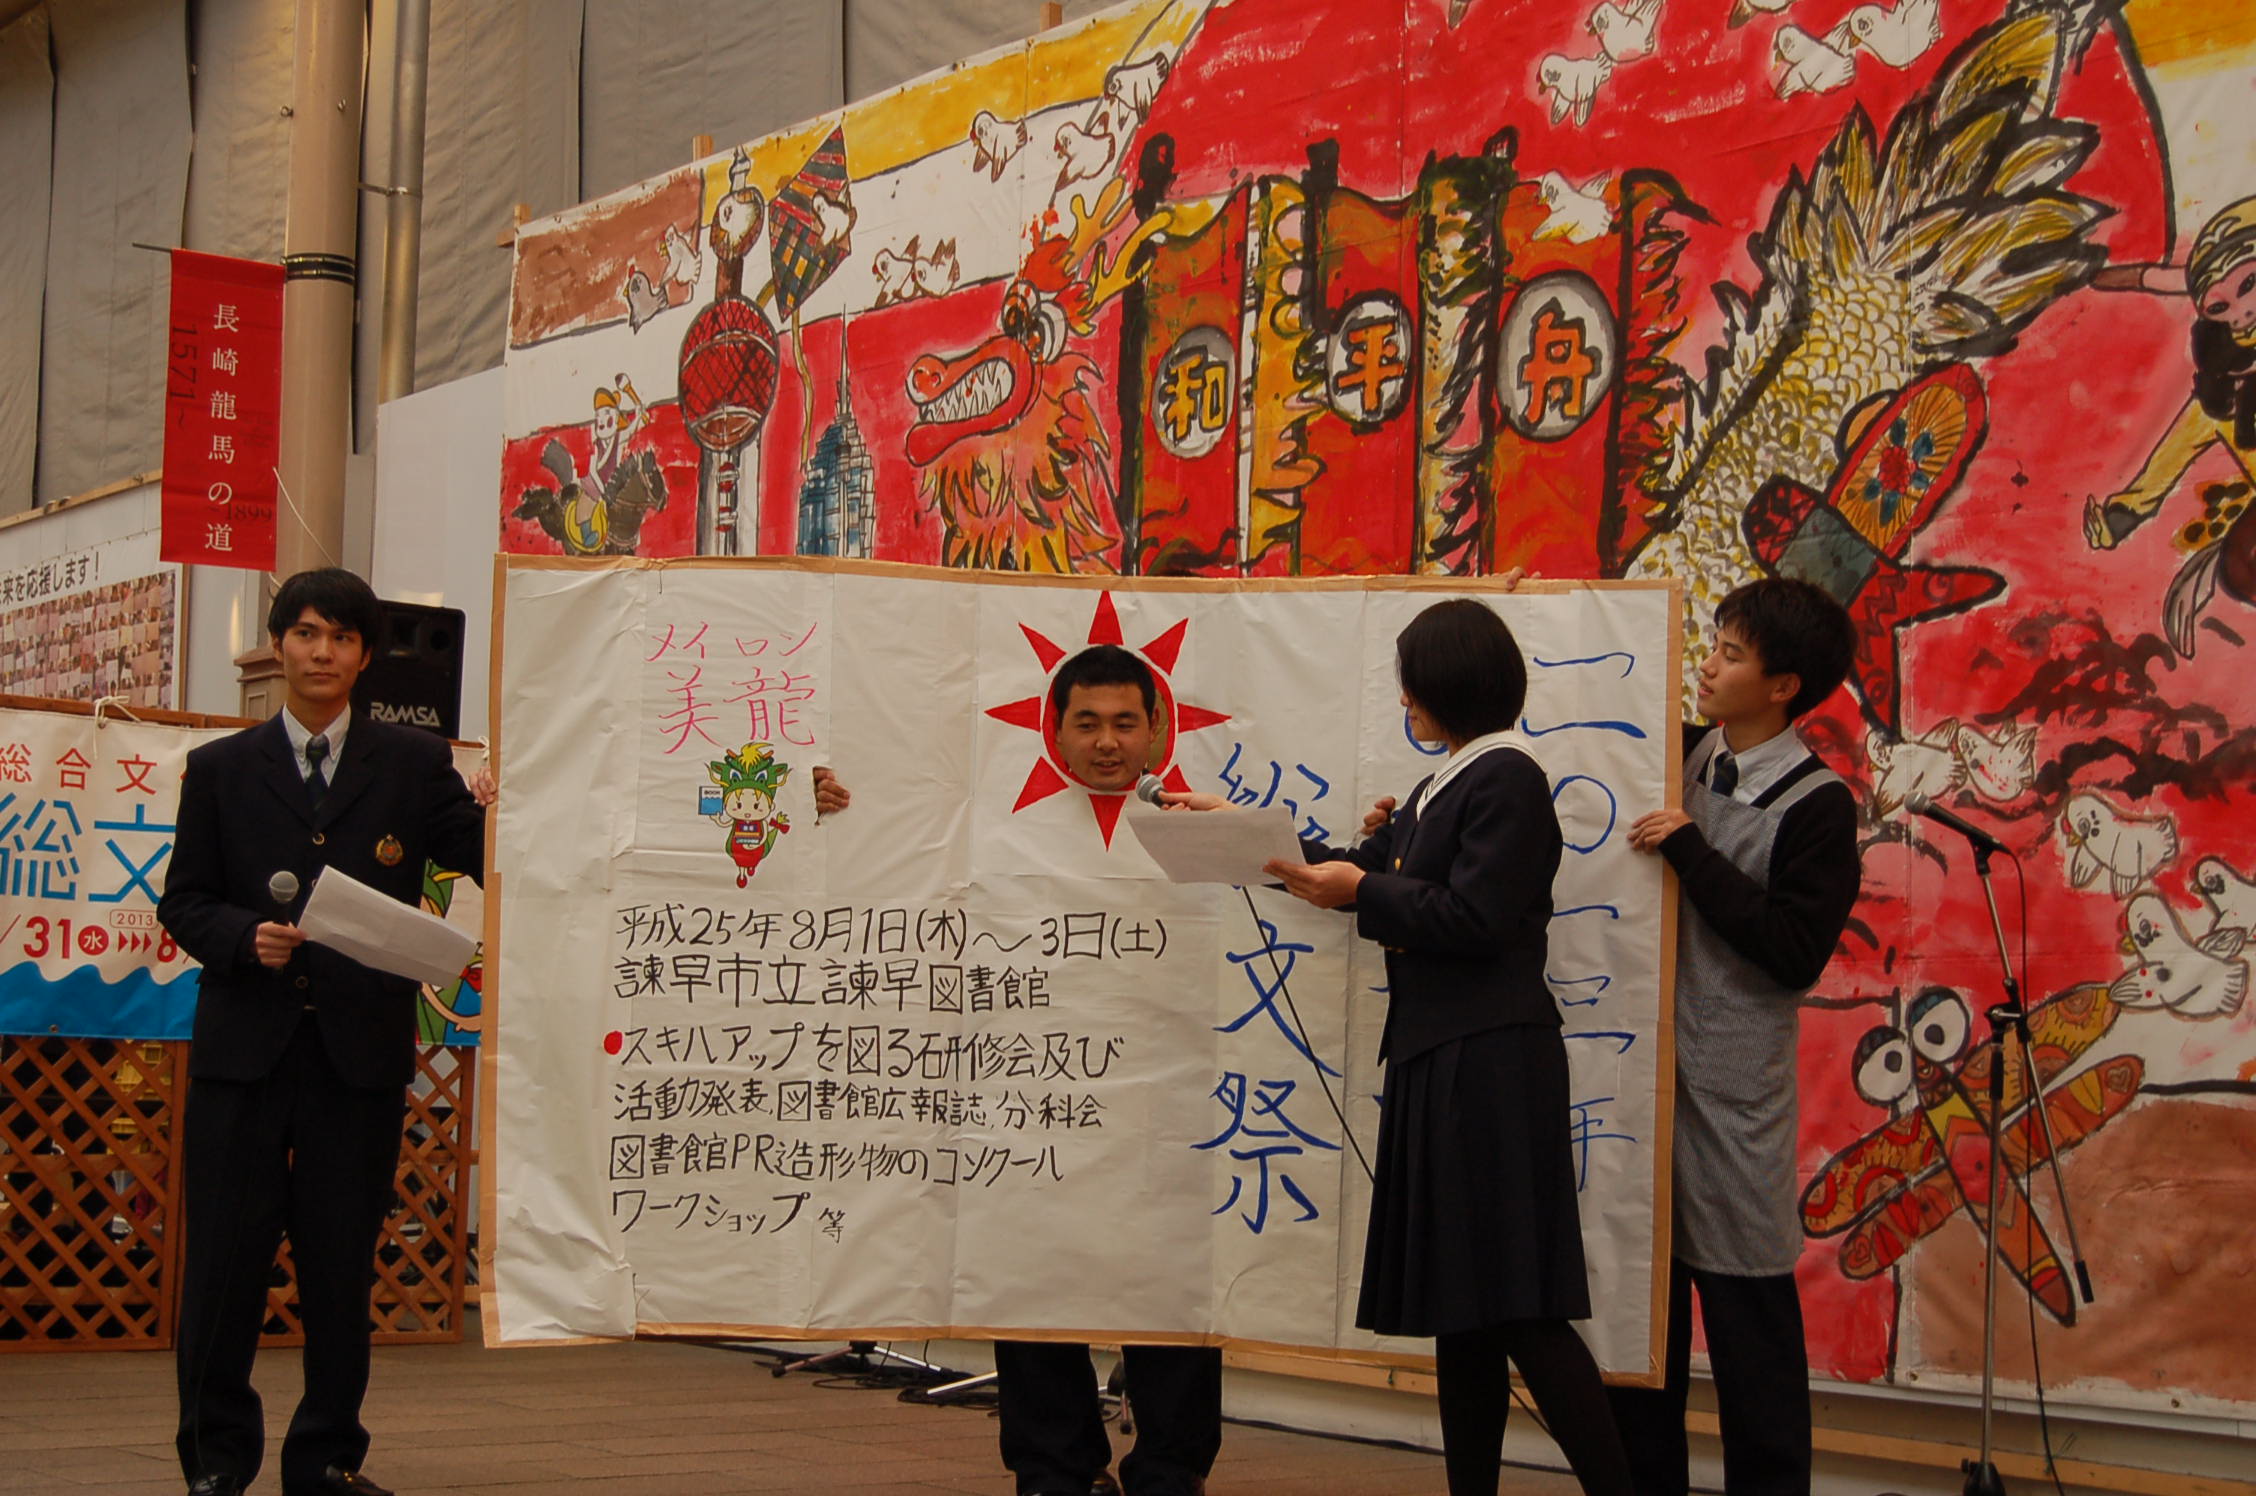 長崎龍馬の道
1571~
1899
和
平
舟
来を応援します!
RAMSA
総合文
総文
31水
2013
8
メイロン
美龍
BOOK
平成25年8月1日(木)～3日(土)
諫早市立諫早図書館
•スキルアップを図る研修会及び
活動発表,図書館広報誌,分科会
図書館PR造形物のコンクール
ワークショップ等
二〇一三年
総文祭